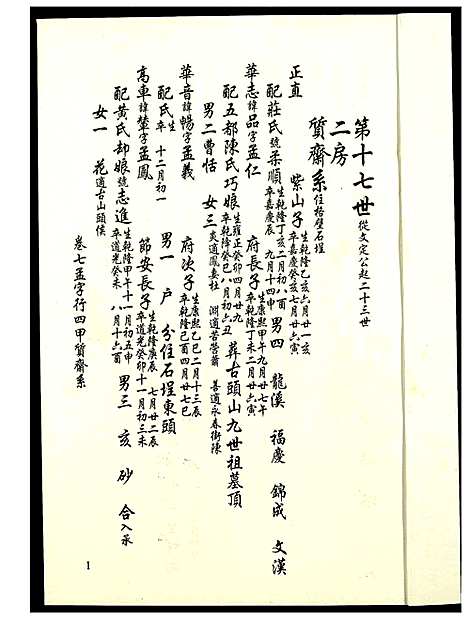 第十七世 從文定公起二十三世
二房
質齋系 住格壁石埕
正直 紫山子 生乾隆乙亥六月廿一亥 卒嘉慶癸亥七月廿六寅
配莊氏號柔順 生乾隆丁亥二月初八酉 卒嘉慶庚辰九月十四申 男四 龍溪 福慶 錦成 文漢
華志諱品字孟仁 府長子 生康熙甲午九月廿七午 卒乾隆丁未二月廿六寅
配五都陳氏巧娘 生雍正癸卯四月廿九 卒乾隆癸巳八月初六丑 葬古頭山九世祖墓頂
男二 曹 恬 女三 炎適鳳妻杜 湖適苦營蕭 善適永春衛陳
華音諱暢字孟義 府次子 生康熙乙巳二月十三辰 卒乾隆己酉四月廿七巳
配氏 生 卒十二月初一 男一 户 分住石埕東頭
高車諱輦字孟鳳 節安長子 生乾隆庚辰七月廿二辰 卒道光癸卯十一月初三未
配黃氏却娘號志進 生乾隆甲午十一月初五申 卒道光癸未八月十六酉 男三 亥 砂 合入承
女一 花適古山頭侯
卷七孟字行四甲質齋系
1